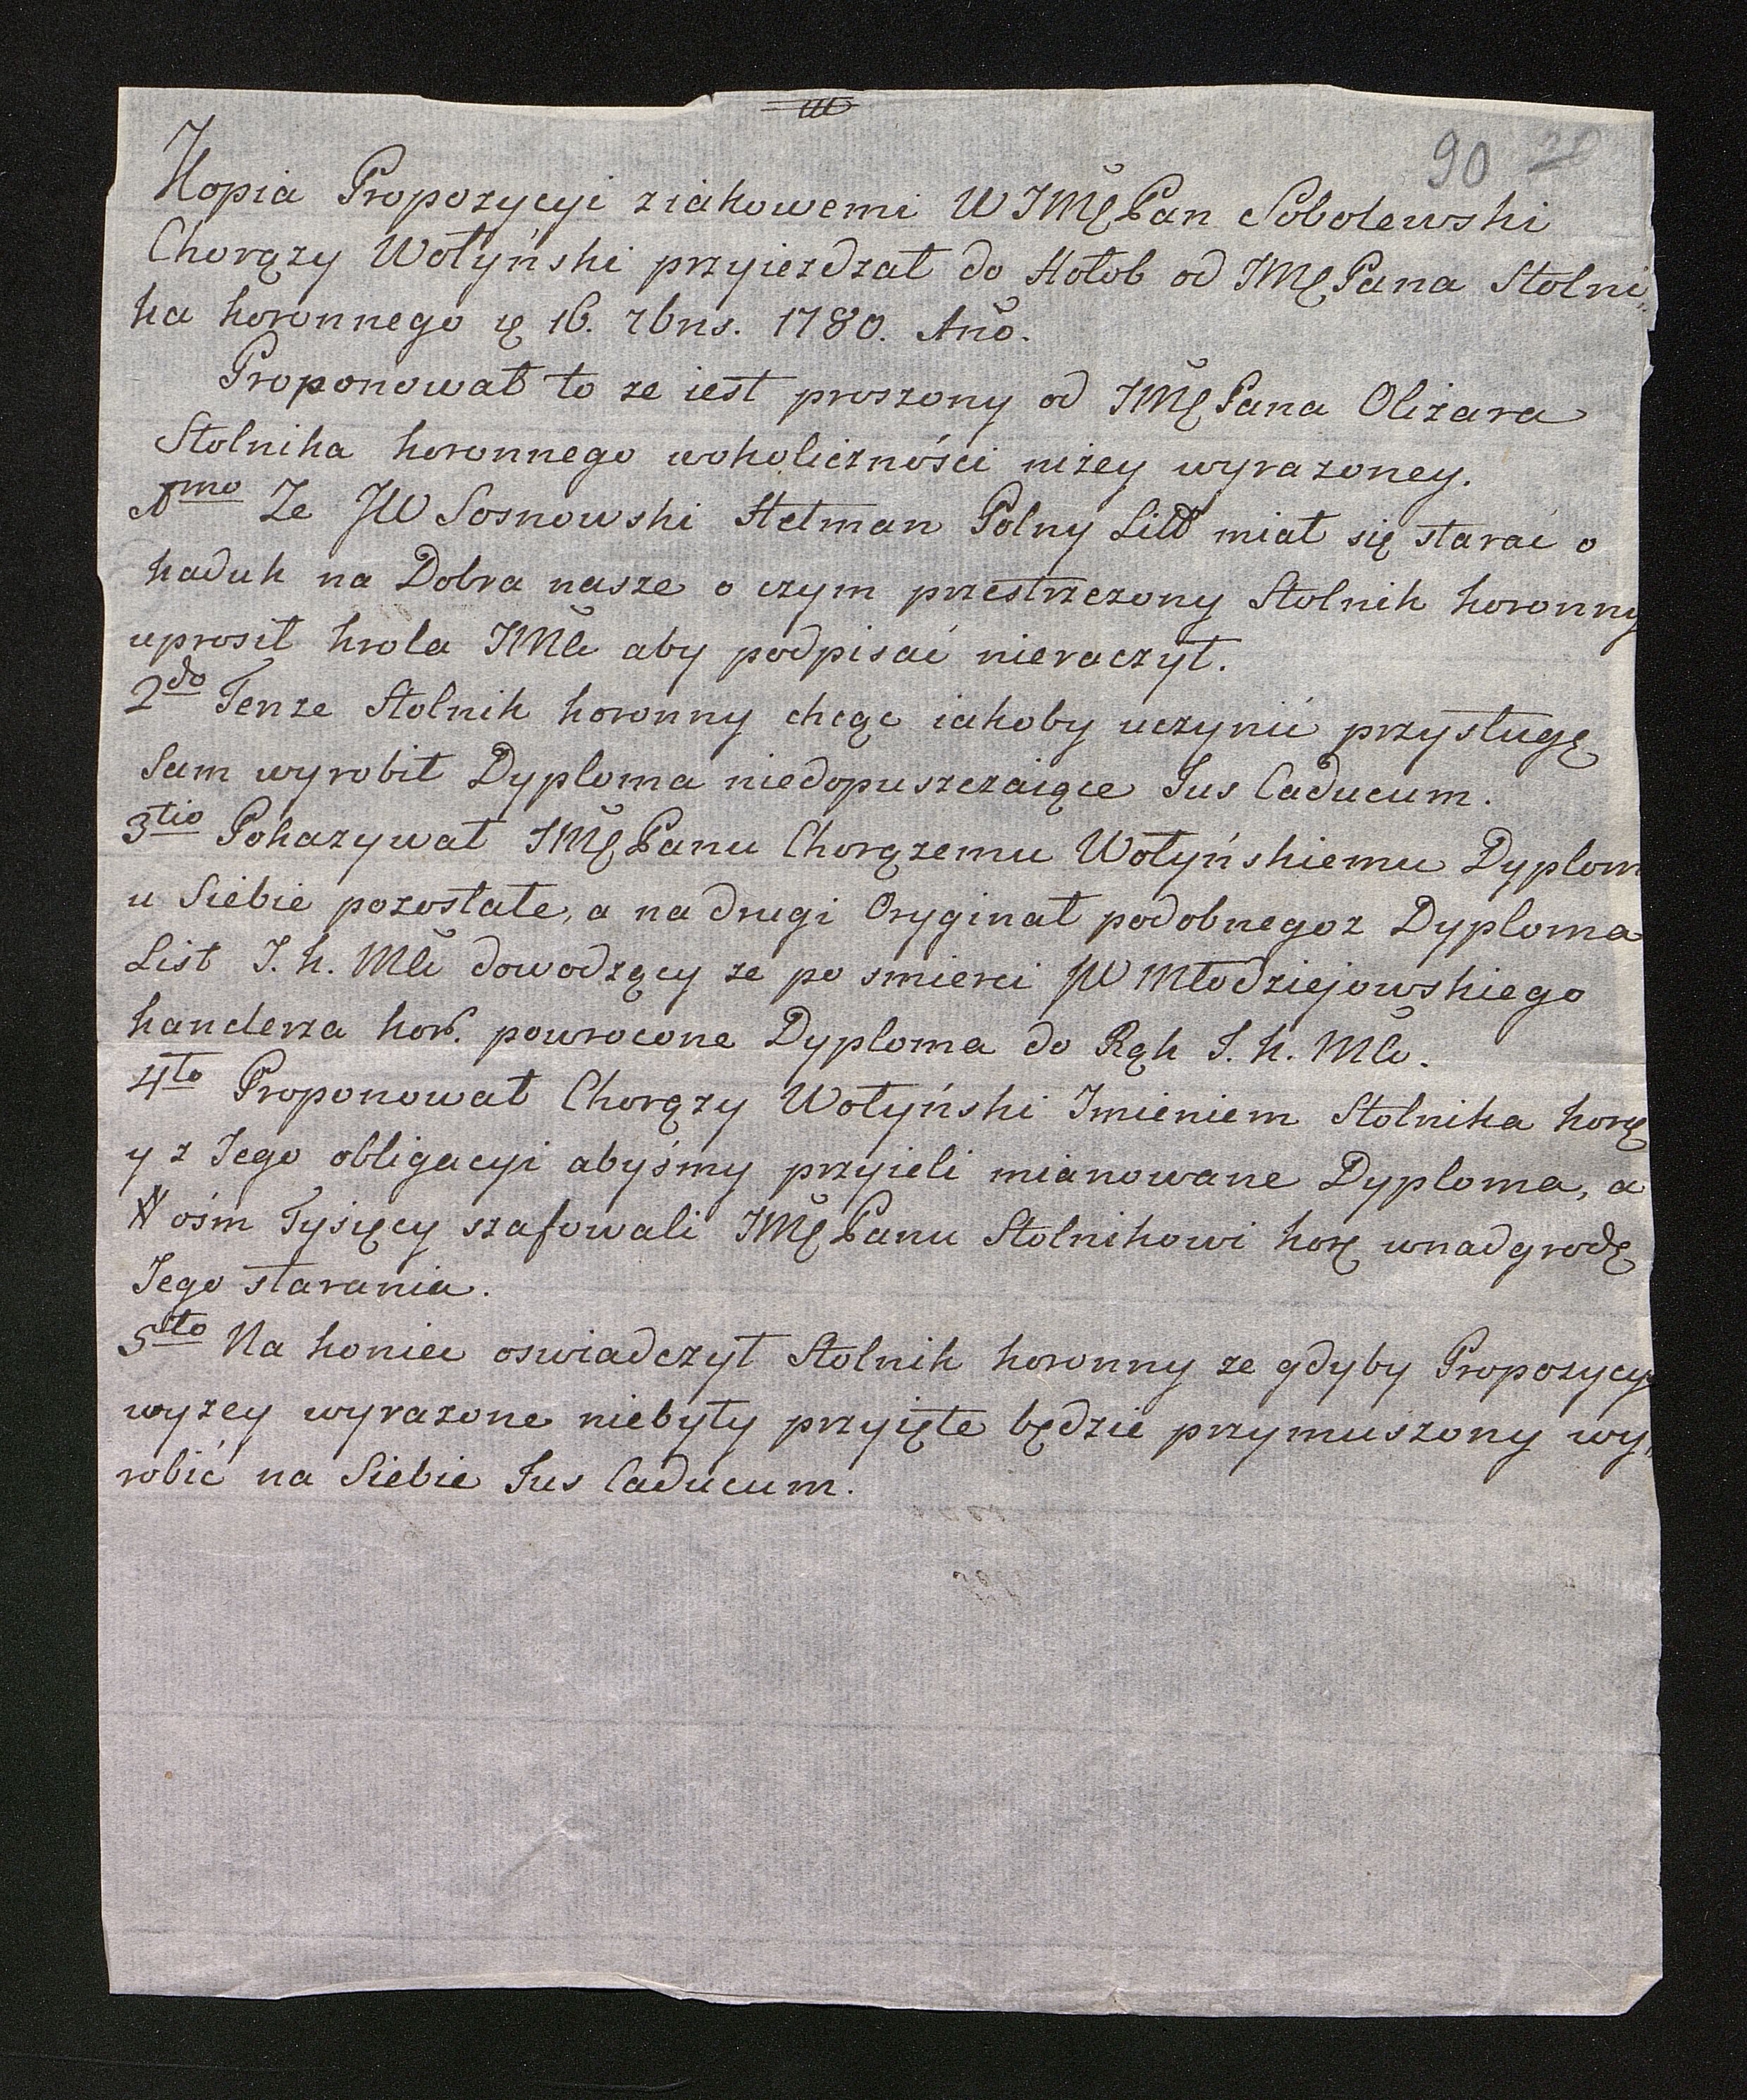 90
Kopia Propozycyi z iakowemi WJMę Pan Sobolewski
Chorąży Wołyński przyiezdzał do Hołob od JMę Pana Stolni
ka koronnego 16. 7bris. 1780. Año.
Proponował to ze iest proszony od JMę Pana Olizara
Stolnika koronnego w okoliczności nizey wyrazoney.
1mo Ze JW Sosnowski Hetman Polny Litt miał się starać o
kaduk na Dobra nasze o czym przestrzezony Stolnik koronny
uprosił krola JMci aby podpisać nieraczył.
2do Tenze Stolnik koronny chcąc iakoby uczynić przysługę
Sam wyrobił Dyploma niedopuszczaiące Jus Caducum.
3tio Pokazywał JMę Panu Chorązemu Wołyńskiemu Dyplom
u Siebie pozostałe, a na drugi Oryginał podobnegoz Dyploma
List J. k. Mci dowodzący ze po smierci JW Młodziejowskiego
kanclerza kor. powrocone Dyploma do Rąk J. k. Mci.
4to Proponował Chorązy Wołyński Imieniem Stolnika korę
y z Iego obligacyi abyśmy przyieli mianowane Dyploma, a
# ośm Tysięcy szafowali JMę Panu Stolnikowi korę w nadgrodę
Iego starania.
5to Na koniec oswiadczył Stolnik koronny ze gdyby Propozycy
wyzey wyrazone niebyły przyięte będzie przymuszony wy
robić na Siebie Jus Caducum.